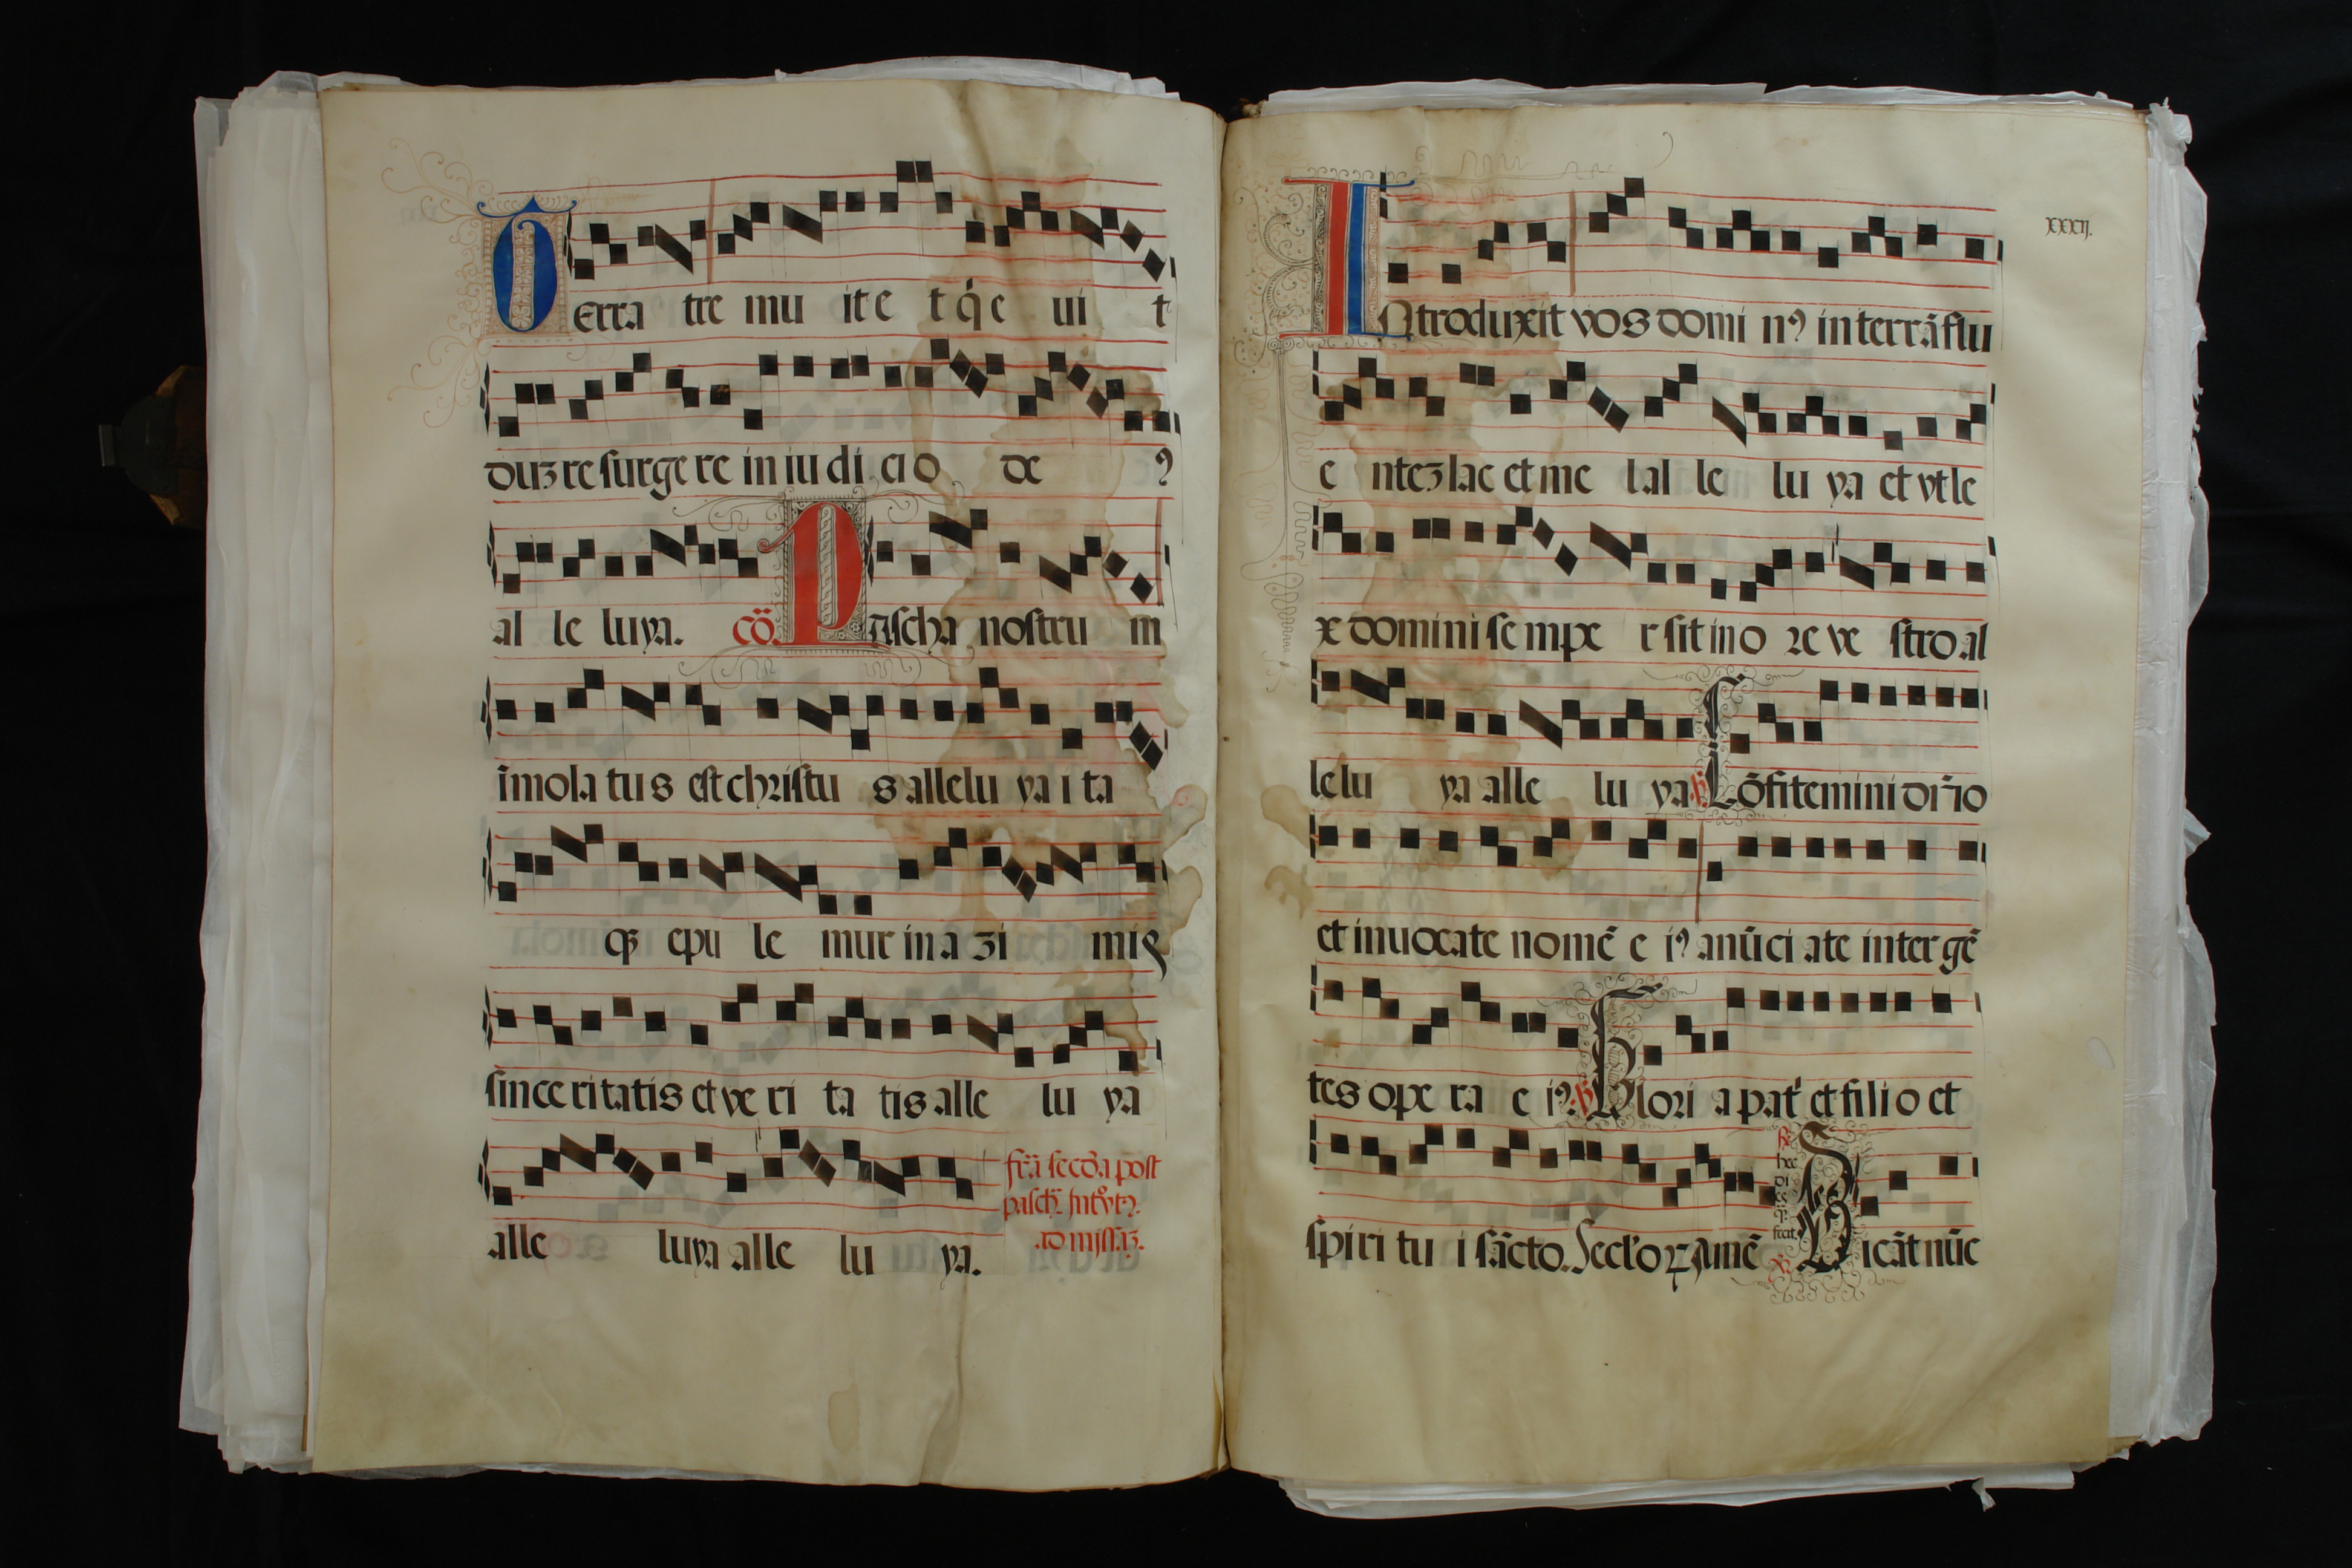 Terra tre mu ite t q̇e ui t
duʒ re surge re in iu di cio de ꝰ
al le luya. cō. Pascha nostru m
īmola tus est christu s allelu ya i ta
qʒ epu le mur in a zi mis
sinceritatis et ve ri ta tis alle lu ya
alle luya alle lu ya.
fr̄a secōa post
pasch̄. Intʳoytꝰ.
ad missaʒ.
xxxij.
INtroduxit vos domi nꝰ in terrā flu
e nteʒ lac et me l al le lu ya et vt le
x domini se mpe r sit in o re ve stro al
le lu ya alle lu ya ℣. Cōfitemini dn̄io
et inuocate nomē e iꝰ anūci ate inter gē
tes ope ra e iꝰ. ℣. Glori a patˀ et filio et
spiri tu i sācto. Secl'oꝝ Amē
Dicāt nūc